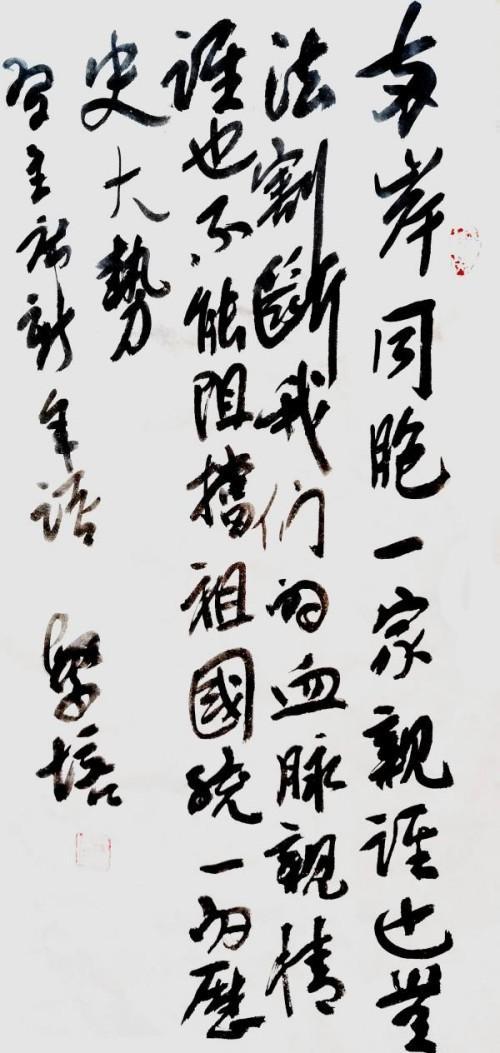 两岸同胞一家親誰也無
法割斷我们的血脉親情
誰也不能阻擋祖國統一的歷
史大勢
習主席新年語
培